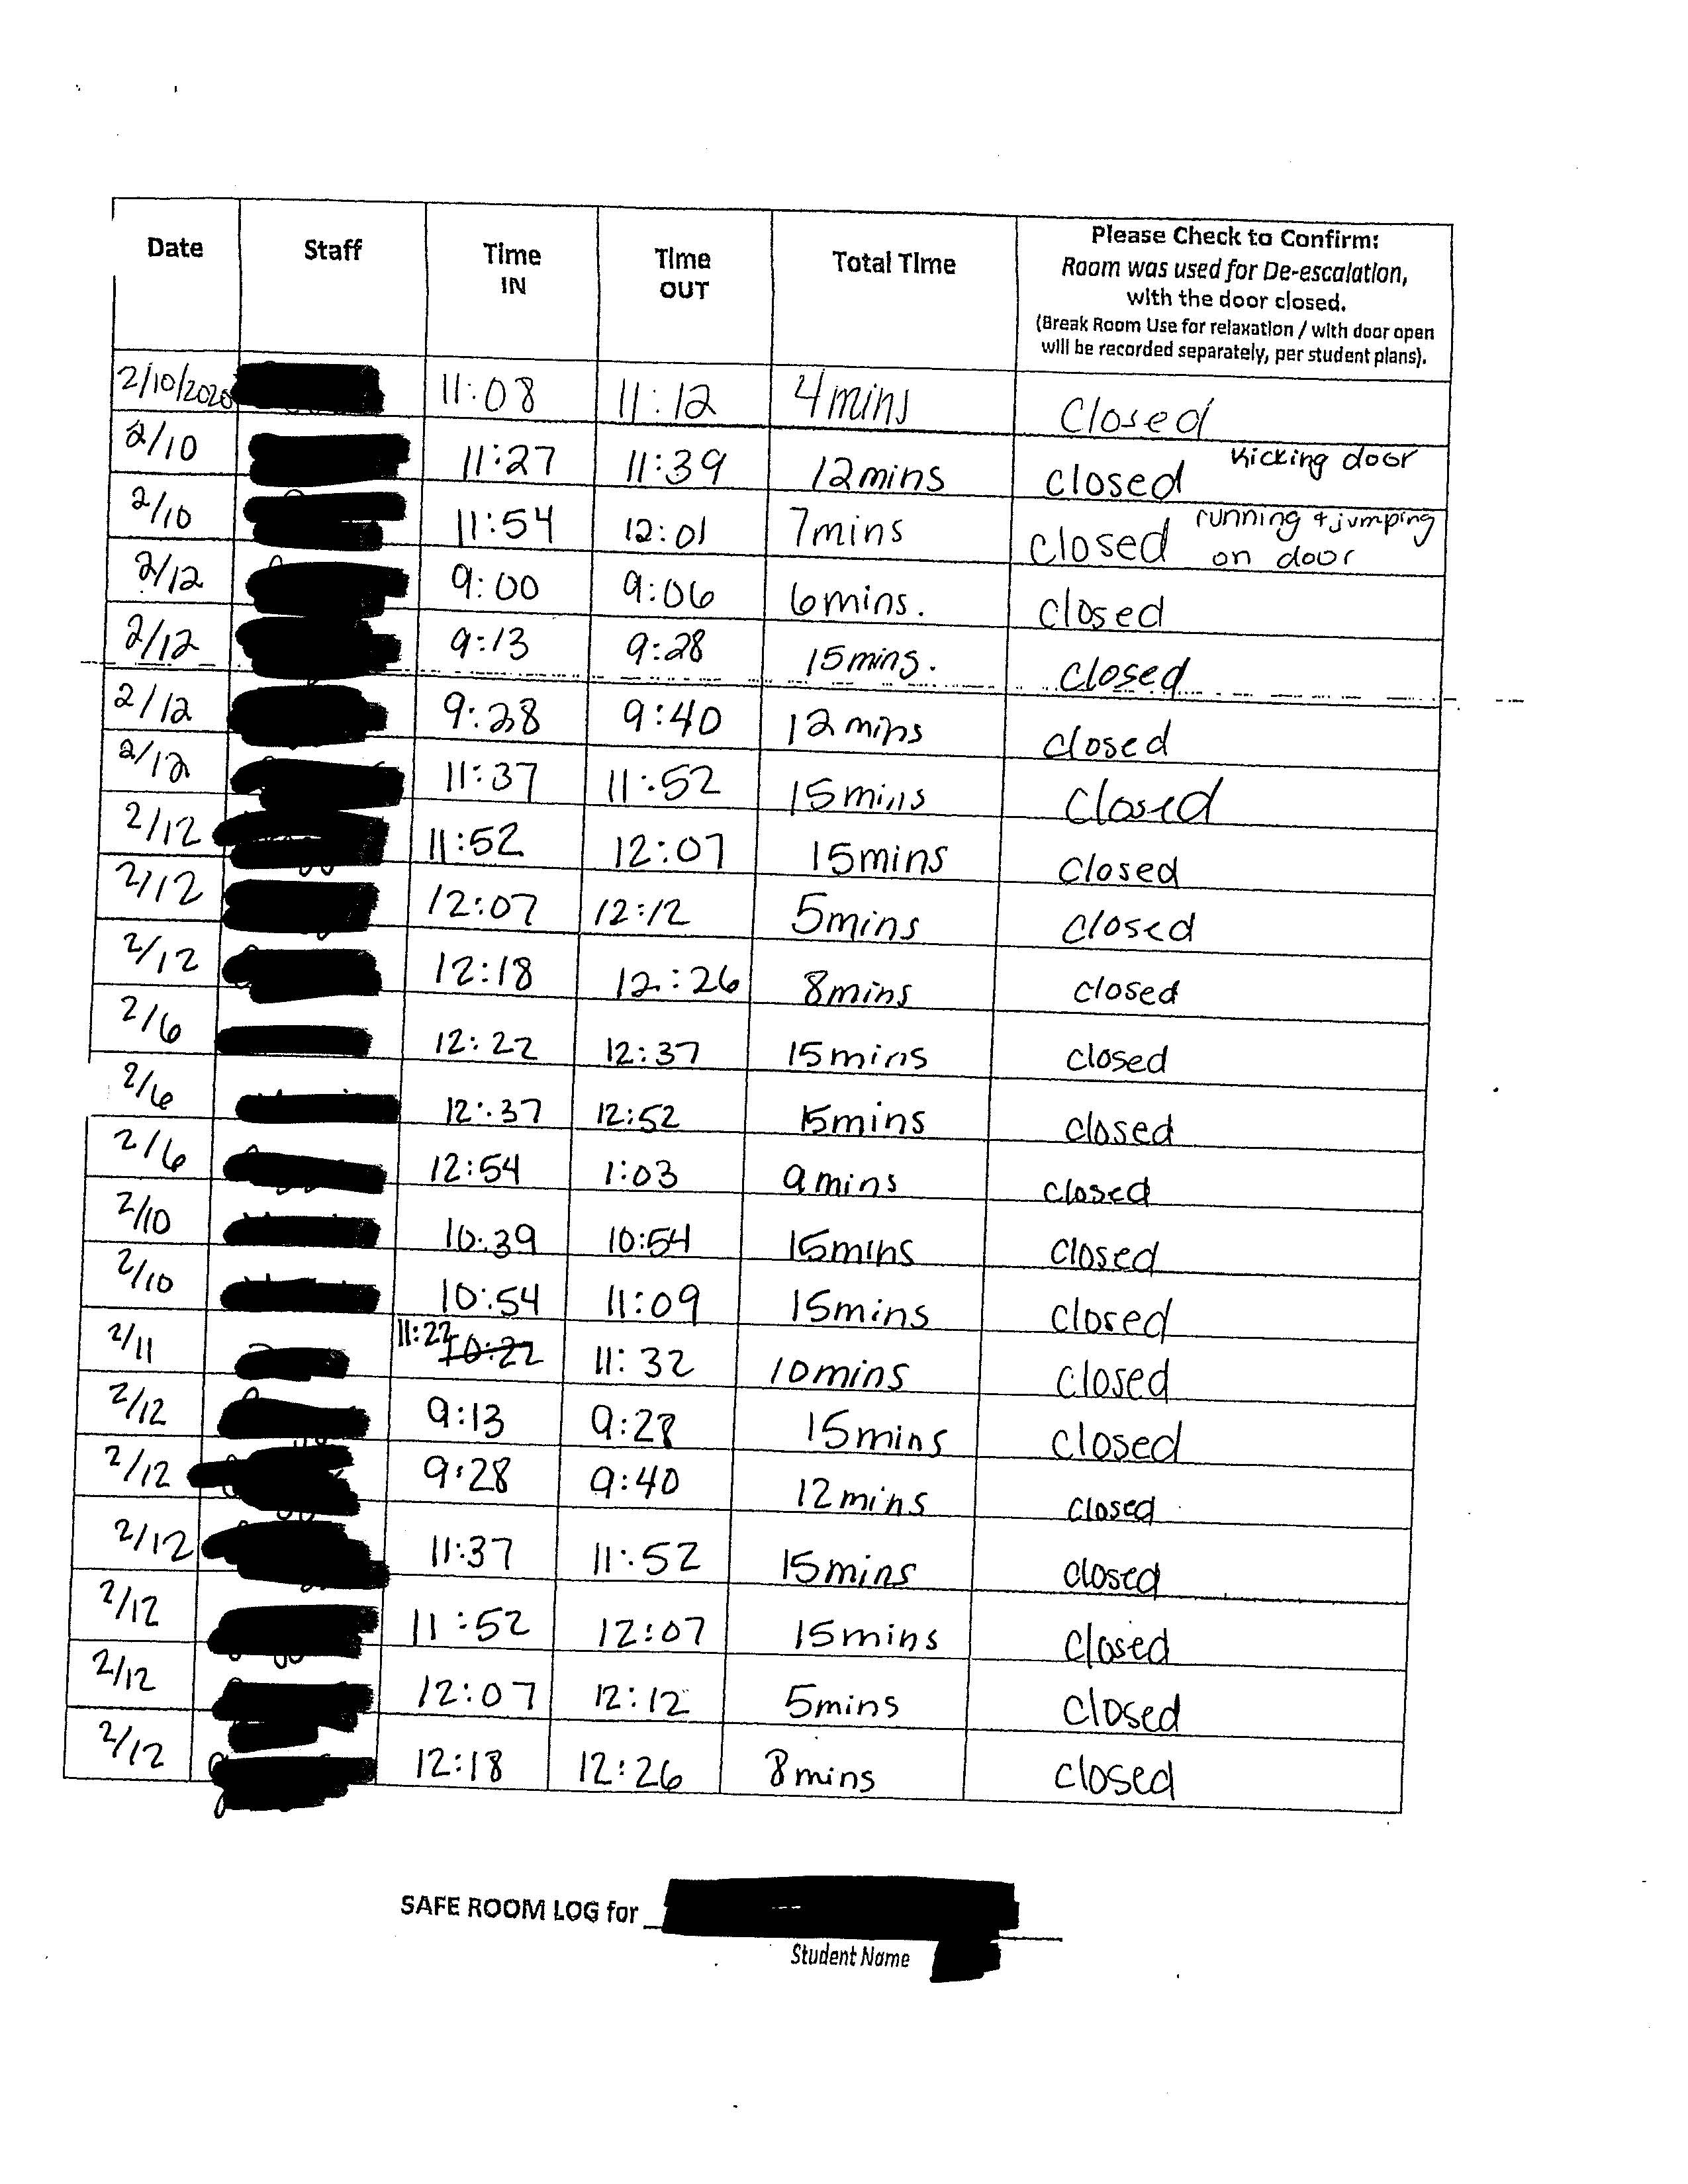 Date Staff Time IN Time OUT Total Time Please Check to Confirm:
Room was used for De-escalation,
with the door closed.
(Break Room Use for relaxation / with door open
will be recorded separately, per student plans).
2/10/2020 11:08 11:12 4mins Closed
2/10 11:27 11:39 12mins closed kicking door
2/10 11:54 12:01 7mins closed running + jumping on door
2/12 9:00 9:06 6mins. closed
2/12 9:13 9:28 15mins. closed
2/12 9:28 9:40 12mins closed
2/12 11:37 11:52 15mins Closed
2/12 11:52 12:07 15mins closed
2/12 12:07 12:12 5mins closed
2/12 12:18 12:26 8mins closed
2/6 12:22 12:37 15mins closed
2/6 12:37 12:52 15mins closed
2/6 12:54 1:03 9mins closed
2/10 10:39 10:54 15mins closed
2/10 10:54 11:09 15mins closed
2/11 11:22 10:22 11:32 10mins closed
2/12 9:13 9:28 15mins closed
2/12 9:28 9:40 12mins closed
2/12 11:37 11:52 15mins closed
2/12 11:52 12:07 15mins closed
2/12 12:07 12:12 5mins closed
2/12 12:18 12:26 8mins closed
SAFE ROOM LOG for
Student Name